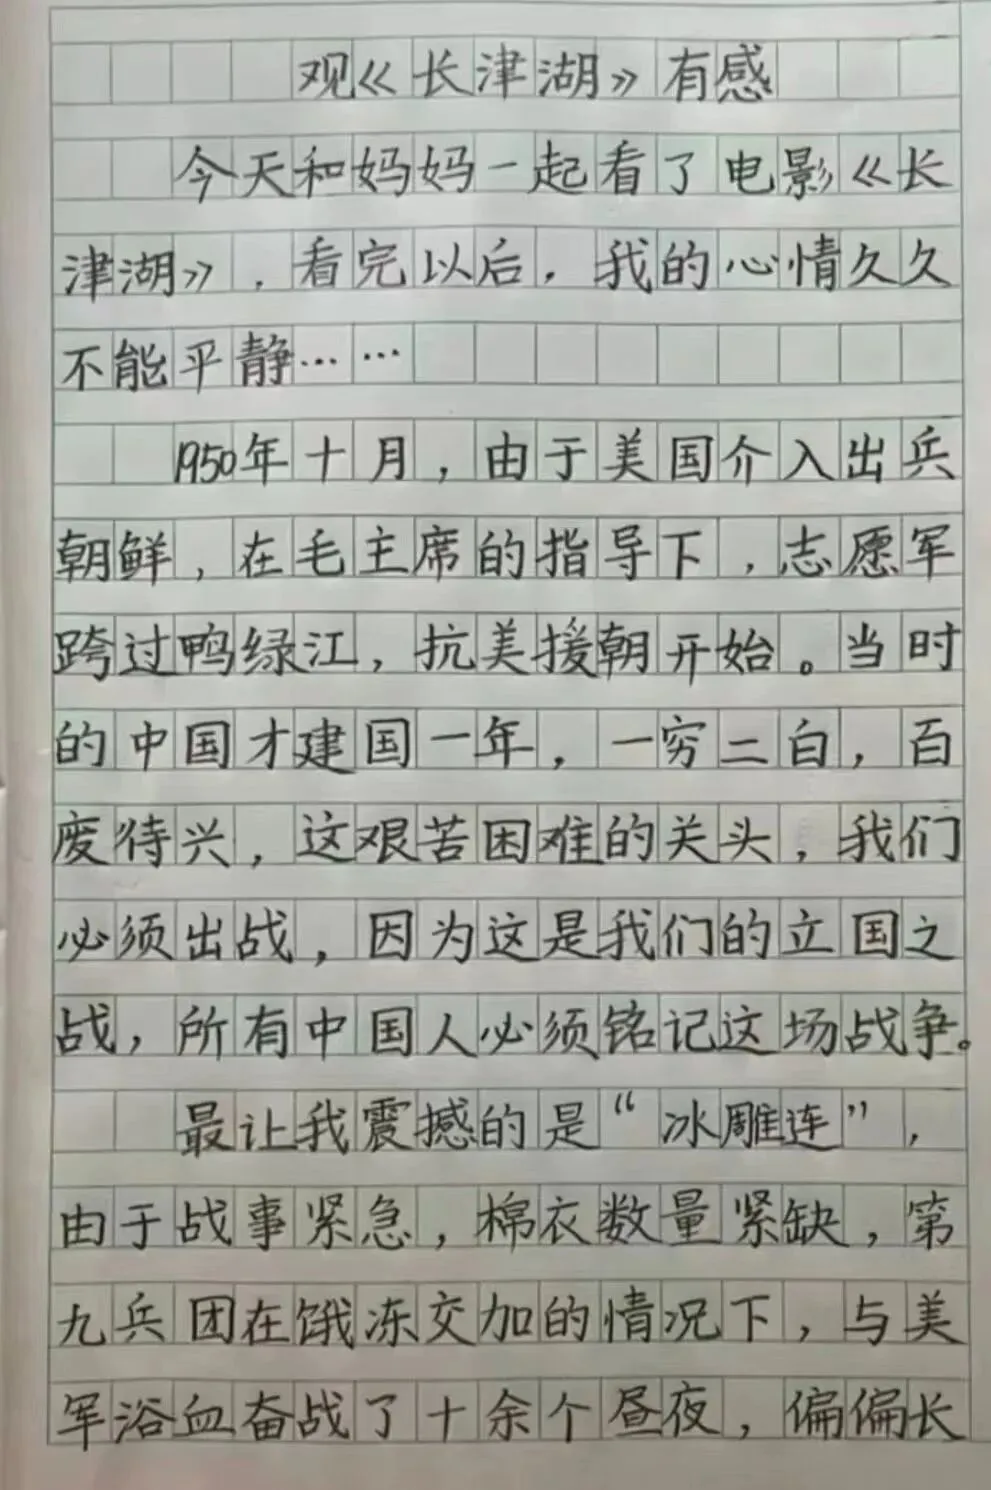 观《长津湖》有感
今天和妈妈一起看了电影《长
津湖》，看完以后，我的心情久久
不能平静……
1950年十月，由于美国介入出兵
朝鲜，在毛主席的指导下，志愿军
跨过鸭绿江，抗美援朝开始。当时
的中国才建国一年，一穷二白，百
废待兴，这艰苦困难的关头，我们
必须出战，因为这是我们的立国之
战，所有中国人必须铭记这场战争。
最让我震撼的是“冰雕连”，
由于战事紧急，棉衣数量紧缺，第
九兵团在饿冻交加的情况下，与美
军浴血奋战了十余个昼夜，偏偏长